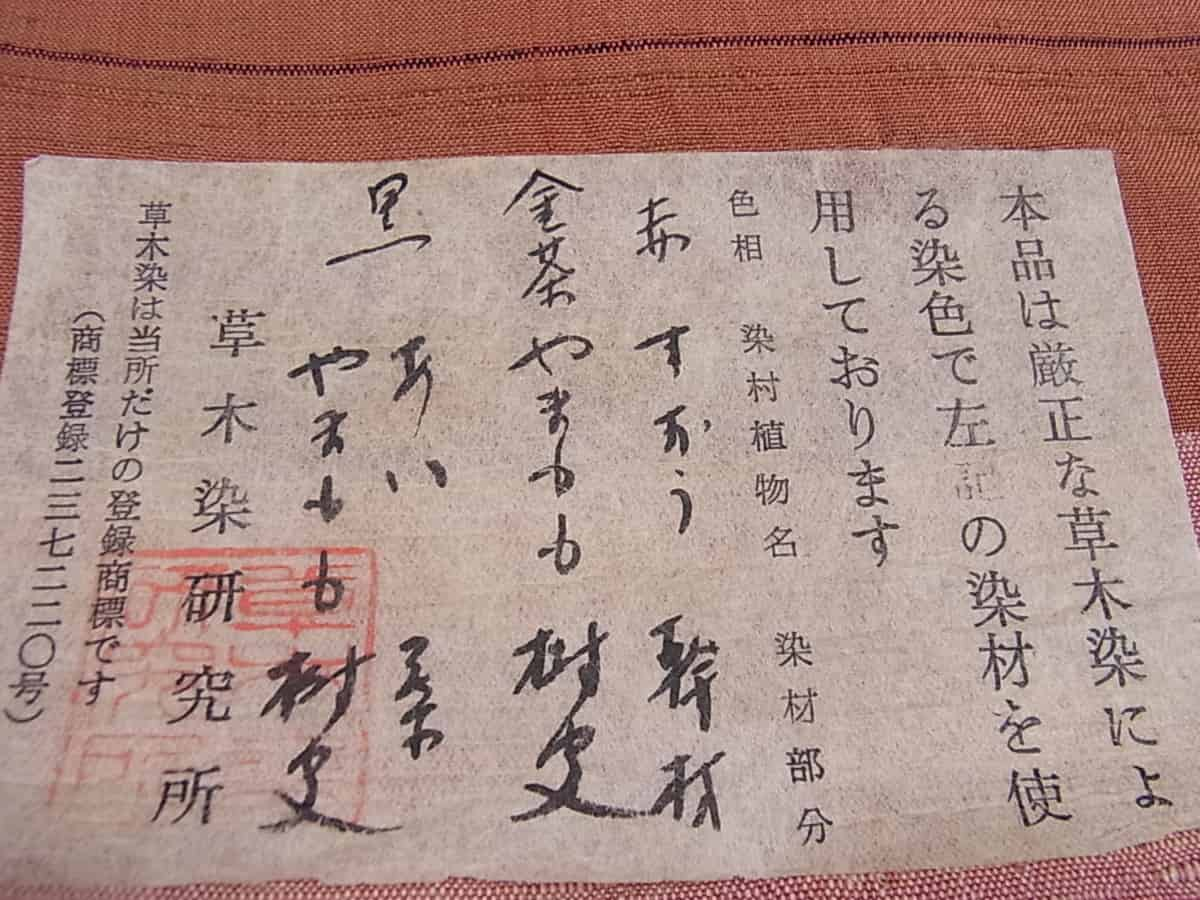 本品は厳正な草木染によ
る染色で左記の染材を使
用しております
色相 染村植物名 染材部分
赤 すおう 幹材
金茶 やまもも 樹皮
黒 あい 葉
やまもも 樹皮
草木染研究所
草木染は当所だけの登録商標です
(商標登録二三七二二〇号)